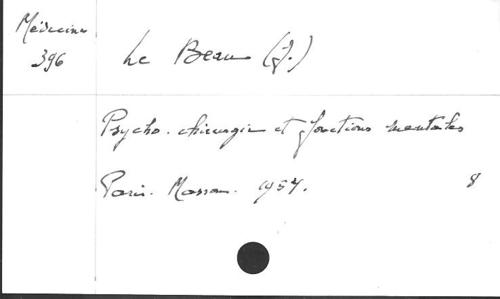 Médecine
396
Le Beau (J.)
Psycho-chirurgie et fonctions mentales
Paris. Masson. 1954.
8